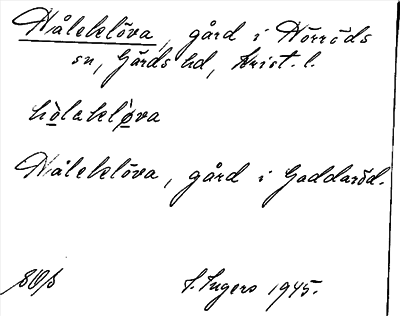 Håleklöva, gård i Hörröds
sn, Gärds hd, Krist. l.
hòlaklø̀va
Håleklöva, gård i Gaddaröd.
S. Ingers 1945.